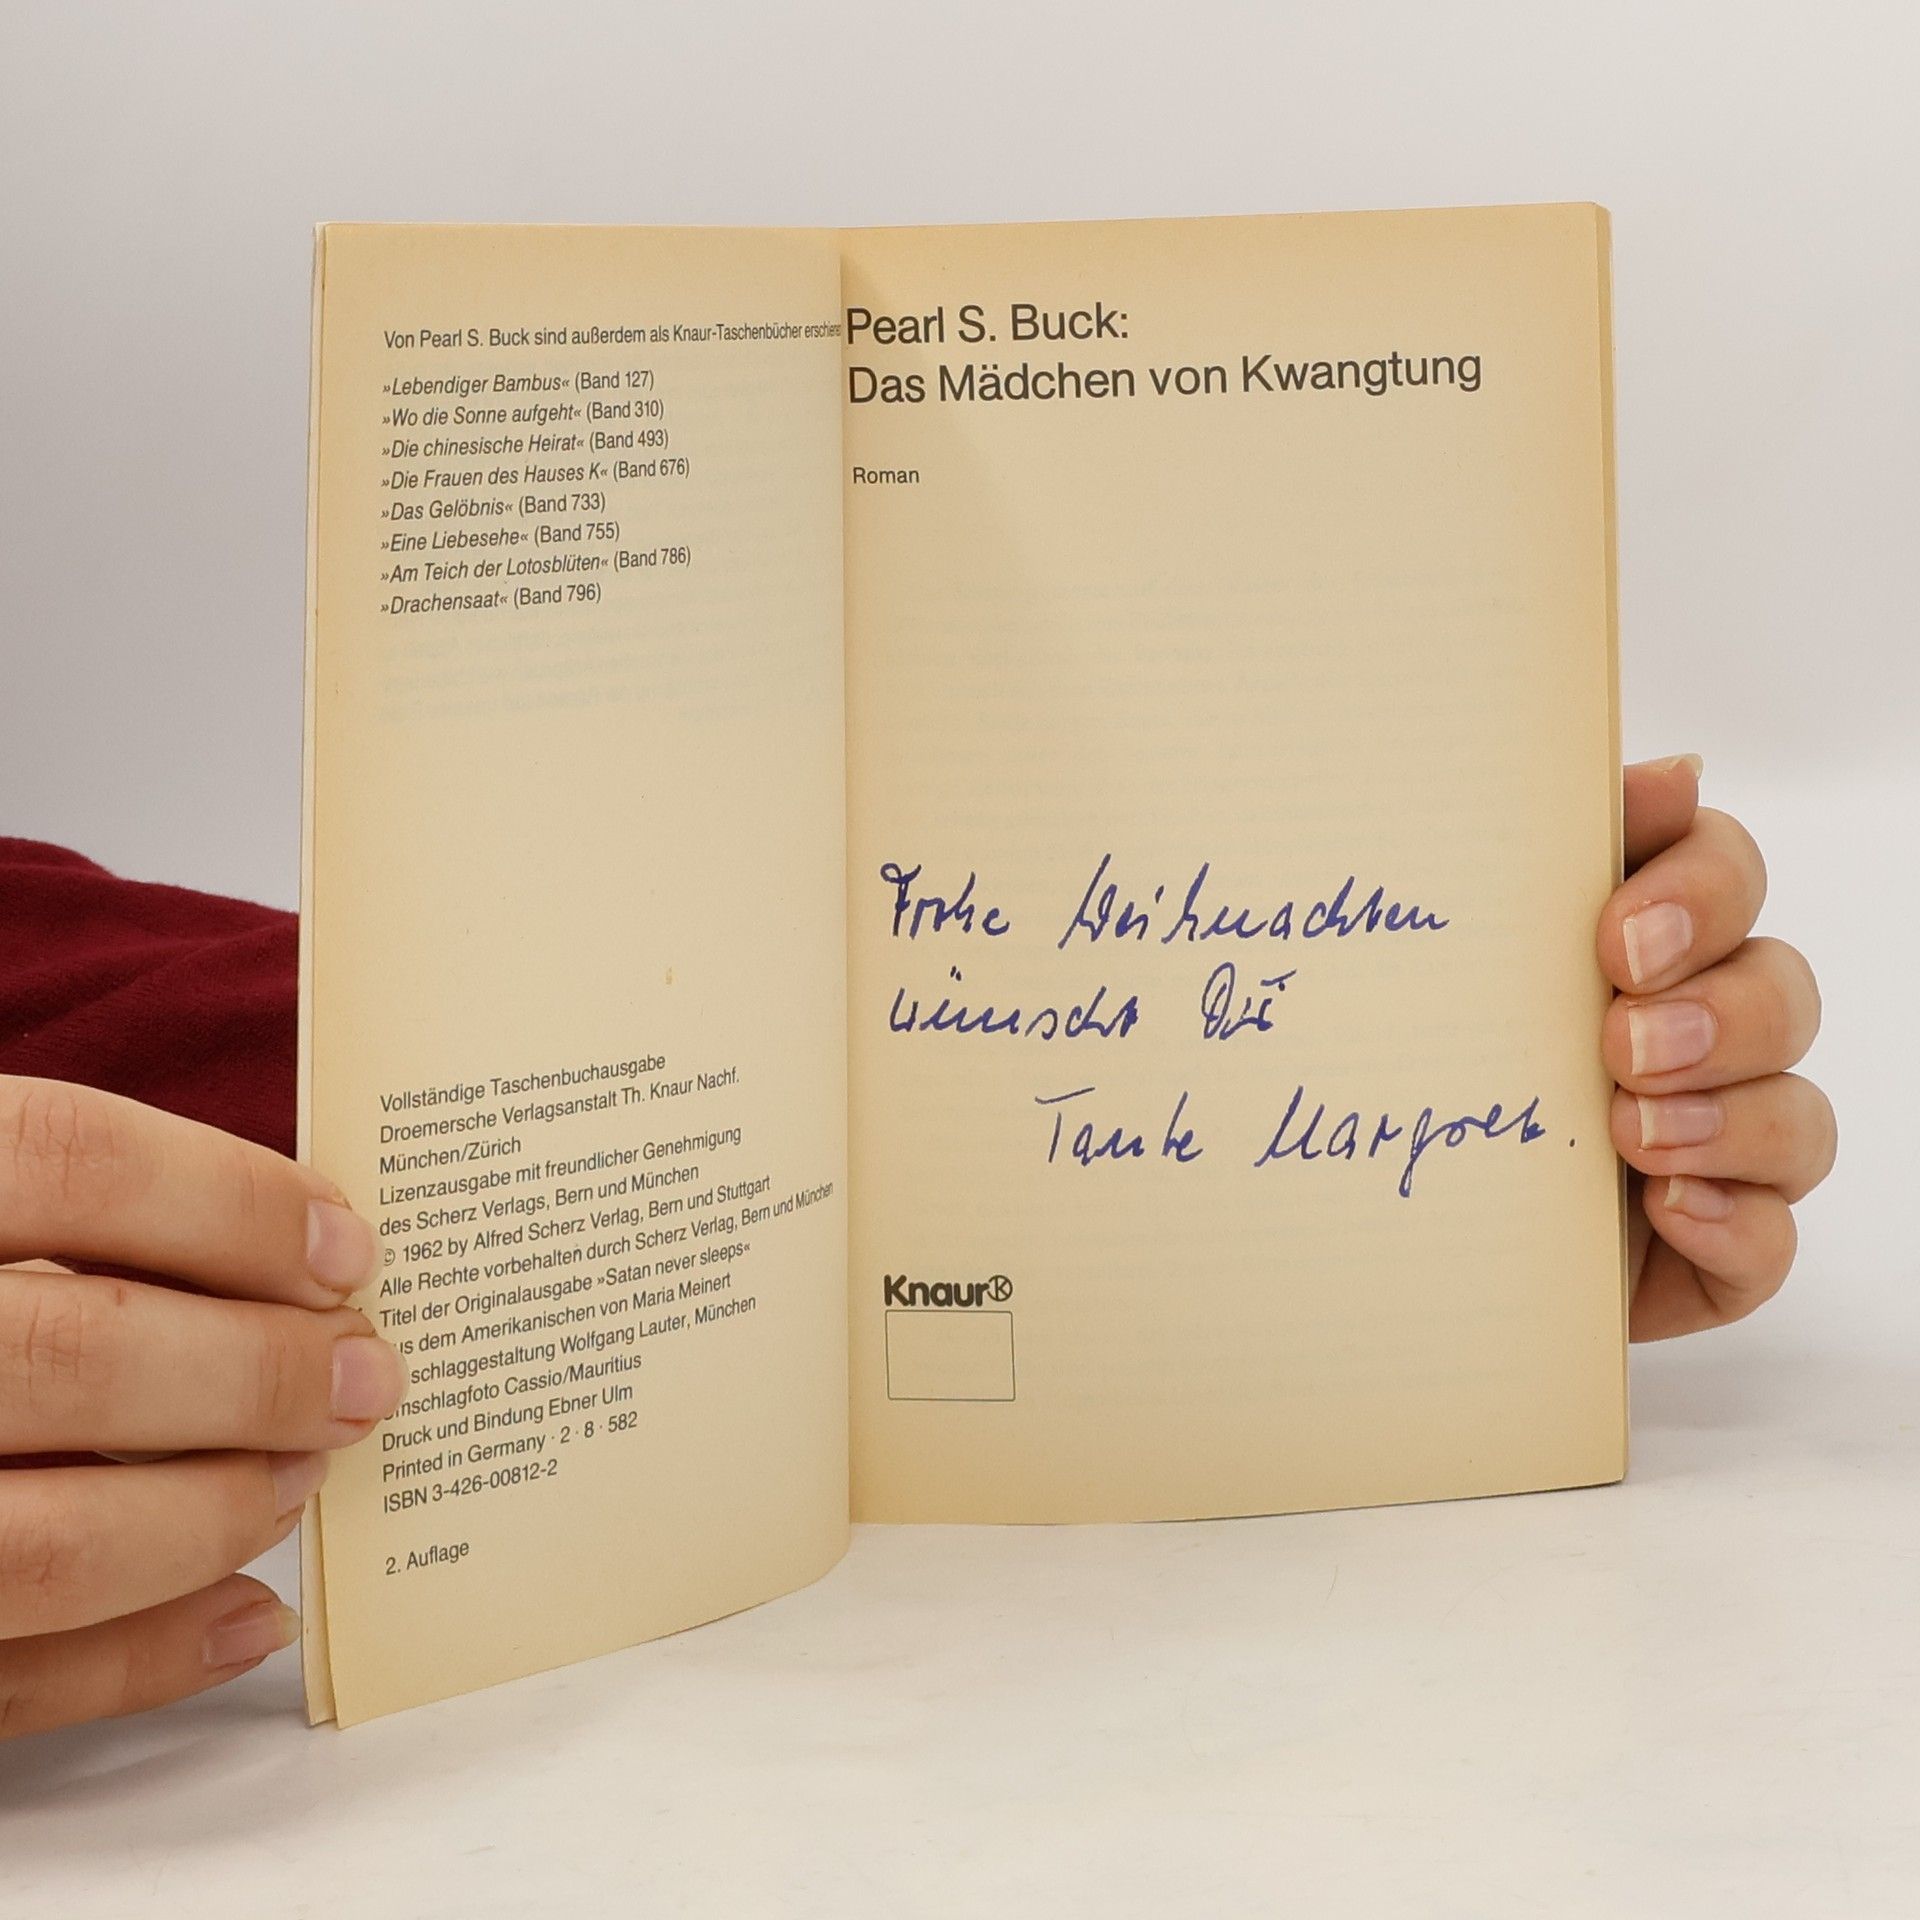 Von Pearl S. Buck sind außerdem als Knaur-Taschenbücher
»Lebendiger Bambus« (Band 127)
»Wo die Sonne aufgeht« (Band 310)
»Die chinesische Heirat« (Band 493)
»Die Frauen des Hauses K« (Band 676)
»Das Gelöbnis« (Band 733)
»Eine Liebesehe« (Band 755)
»Am Teich der Lotosblüten« (Band 786)
»Drachensaat« (Band 796)
Vollständige Taschenbuchausgabe
Droemersche Verlagsanstalt Th. Knaur Nachf.
München/Zürich
Lizenzausgabe mit freundlicher Genehmigung
des Scherz Verlags, Bern und München
© 1962 by Alfred Scherz Verlag, Bern und Stuttgart
Alle Rechte vorbehalten durch Scherz Verlag, Bern und München
Titel der Originalausgabe »Satan never sleeps«
us dem Amerikanischen von Maria Meinert
schlaggestaltung Wolfgang Lauter, München
mschlagfoto Cassio/Mauritius
Druck und Bindung Ebner Ulm
Printed in Germany · 2 · 8 · 582
ISBN 3-426-00812-2
2. Auflage
Pearl S. Buck:
Das Mädchen von Kwangtung
Roman
Frohe Weihnachten
wünscht Dir
Tante
Knaur®